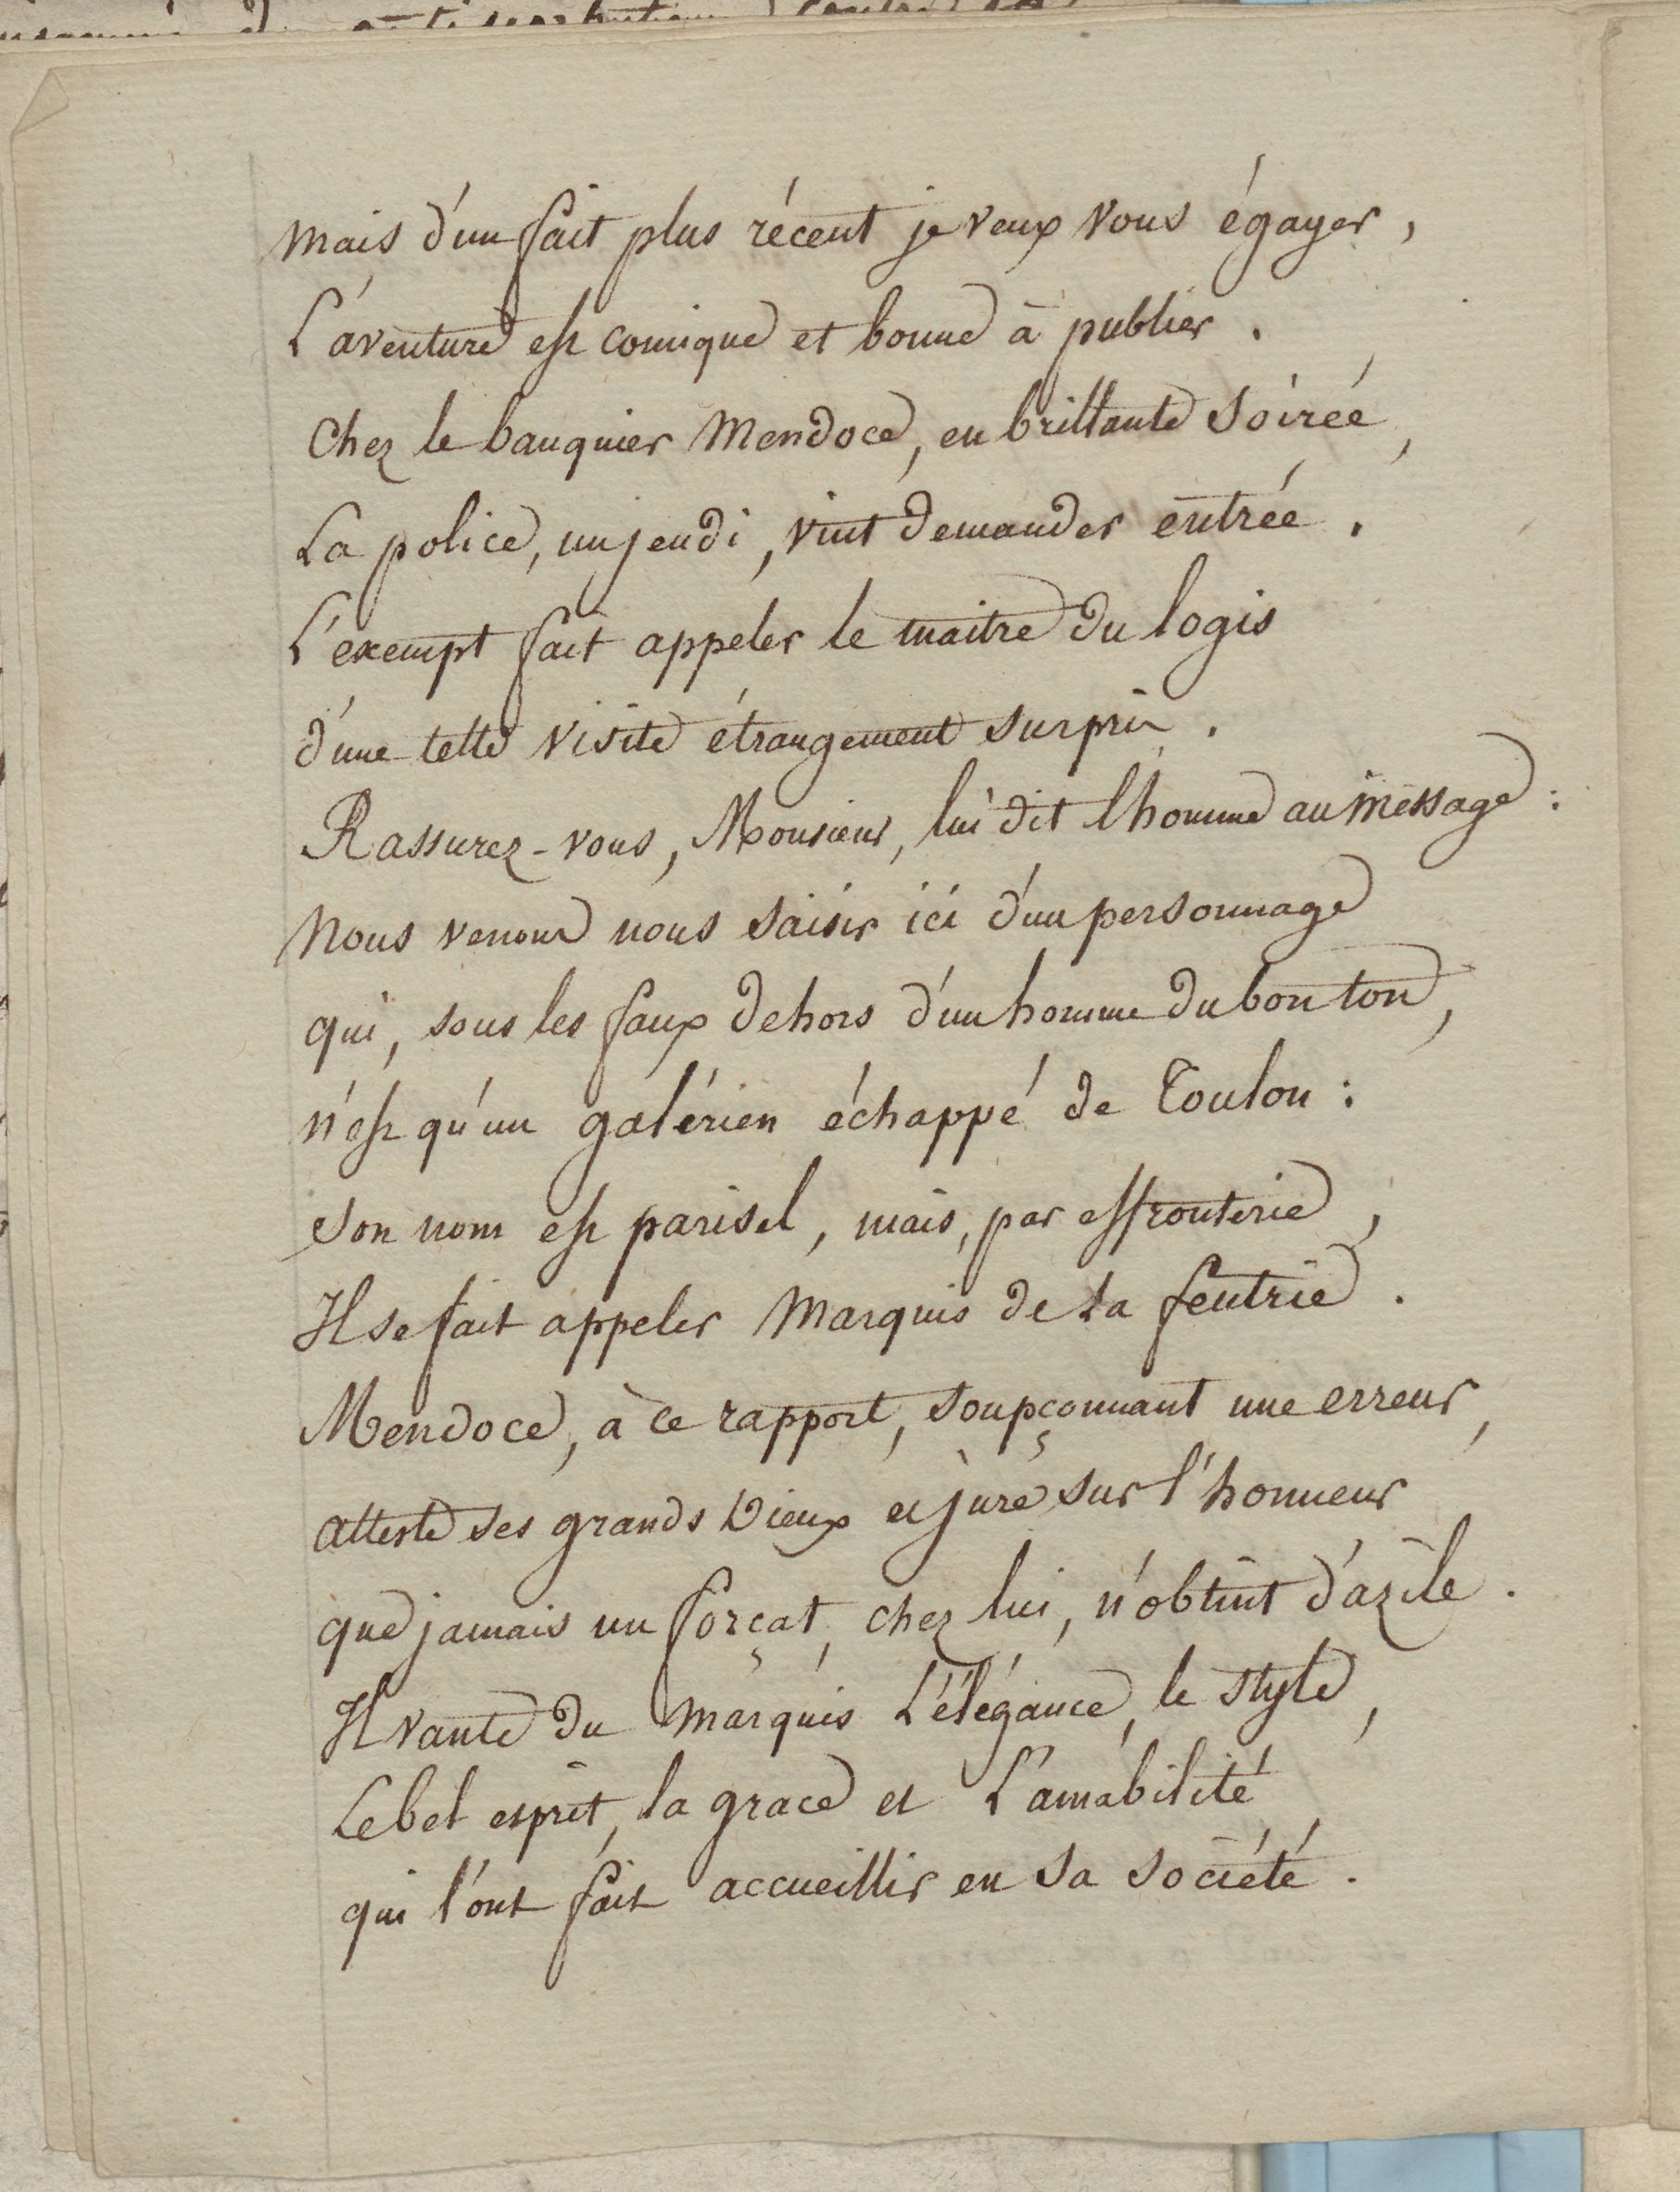 mais d'un fait plus récent je veux vous égayer,
L'aventure est comique et bonne à publier.
Chez le banquier Mendoce, en brillante soirée,
La police, un jeudi, vint demander entrée.
L'exempt fait appeler le maitre du logis
d'une telle visite étrangement surpris.
Rassurez-vous, Monsieur, lui dit l'homme au message:
Nous venons nous saisir ici d'un personnage
qui, sous les faux dehors d'un homme du bon ton,
n'est qu'un galérien échappé de Toulon:
Son nom est parisel, mais, par effronterie,
Il se fait appeler Marquis de La feutrie.
Mendoce, à ce rapport, soupçonnant une erreur,
atteste ses grands Dieux et jure sur l'honneur
que jamais un forçat, chez lui, n'obtint d'azile.
Il vante du Marquis L'élégance, le style,
Le bel esprit, la grace et L'amabilité
qui l'ont fait accueillir en sa société.